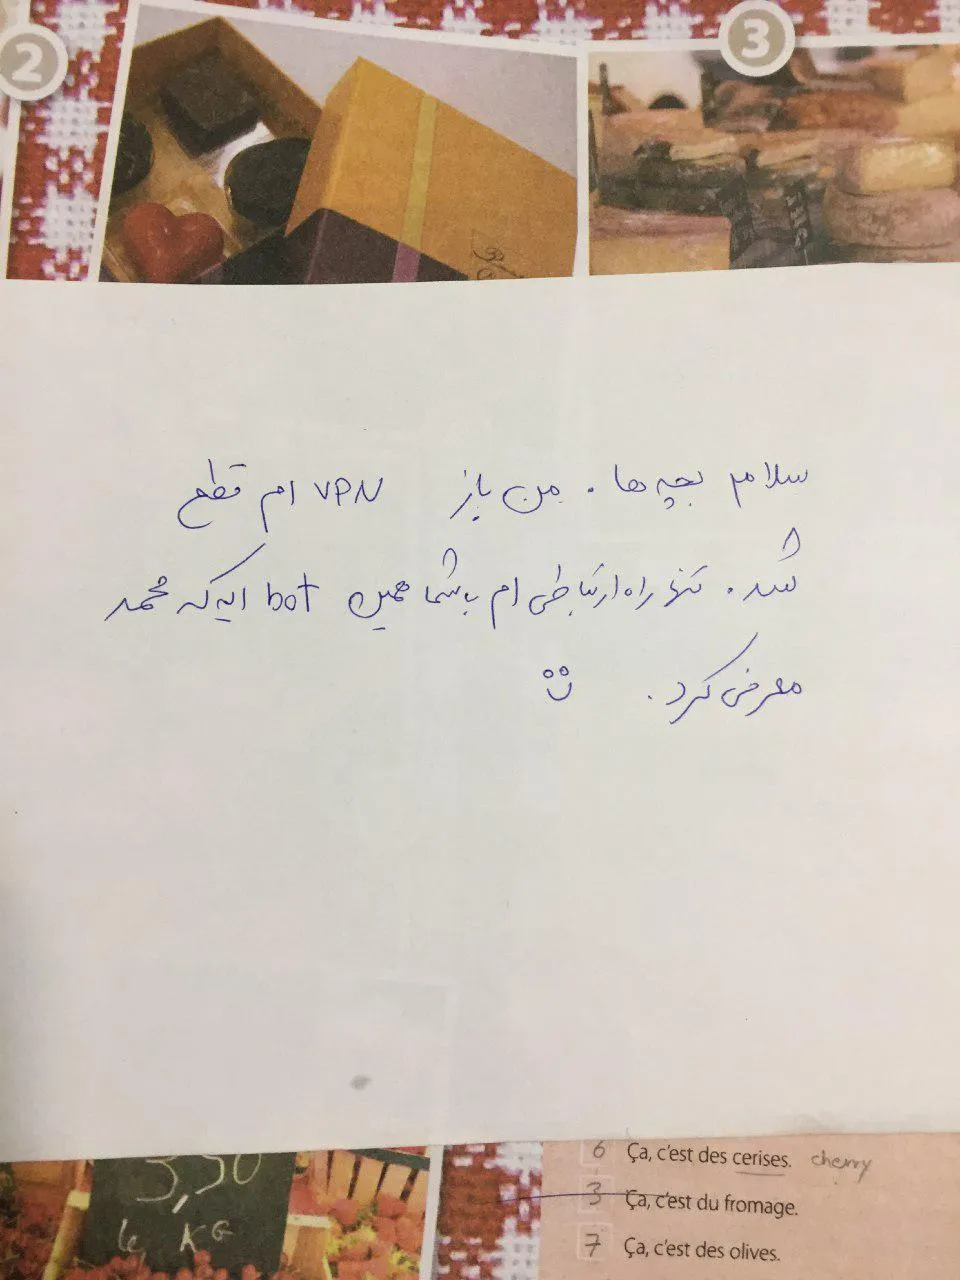 2
3
سلام بچه ها . من باز VPN ام قطع
شد . تنها راه ارتباطی ام با شما همین bot ایه که محمد
معرفی کرد .
3,50
le KG
6 Ça, c'est des cerises. cherry
3 Ça, c'est du fromage.
7 Ça, c'est des olives.